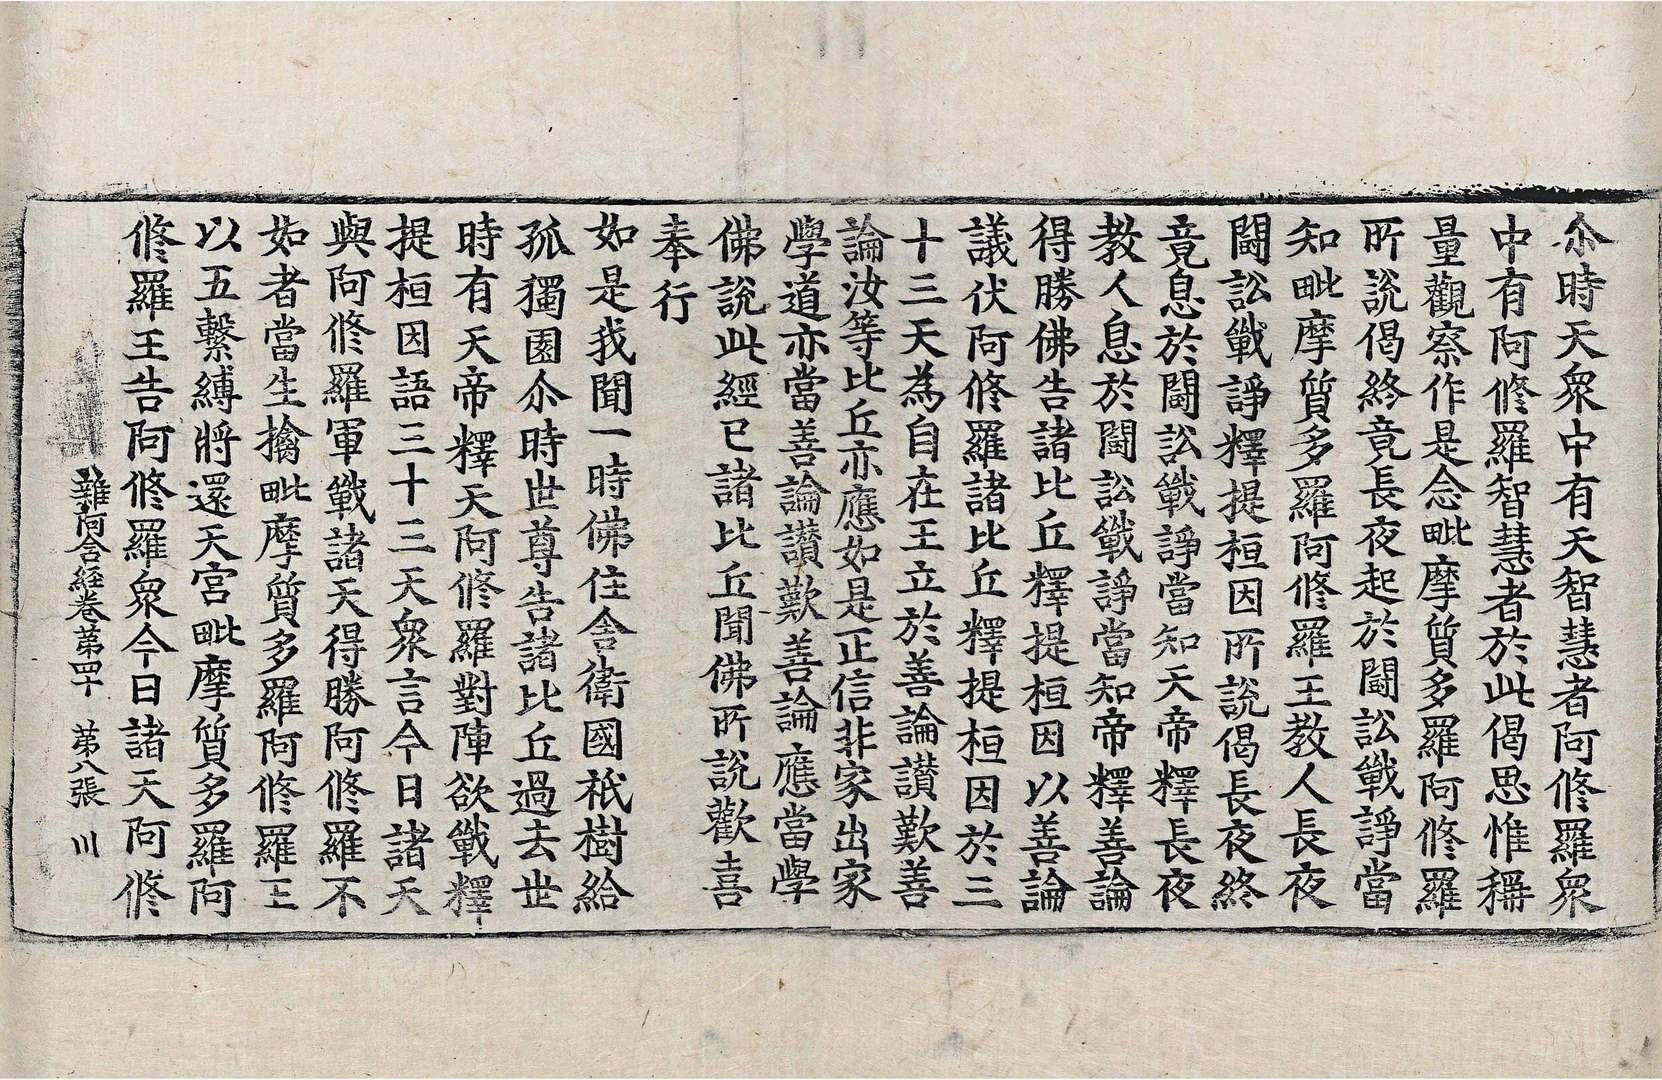 尒時天衆中有天智慧者阿修羅衆
中有阿修羅智慧者於此偈思惟稱
量觀察作是念毗摩質多羅阿修羅
所說偈終竟長夜起於鬪訟戰諍當
知毗摩質多羅阿修羅王教人長夜
鬪訟戰諍釋提桓因所說偈長夜終
竟息於鬪訟戰諍當知天帝釋長夜
教人息於鬪訟戰諍當知帝釋善論
得勝佛告諸比丘釋提桓因以善論
議伏阿修羅諸比丘釋提桓因於三
十三天為自在王立於善論讃歎善
論汝等比丘亦應如是正信非家出家
學道亦當善論讃歎善論應當學
佛說此經已諸比丘聞佛所說歡喜
奉行
如是我聞一時佛住舍衛國祇樹給
孤獨園尒時世尊告諸比丘過去世
時有天帝釋天阿修羅對陣欲戰釋
提桓因語三十三天衆言今日諸天
與阿修羅軍戰諸天得勝阿修羅不
如者當生擒毗摩質多羅阿修羅王
以五繫縛將還天宮毗摩質多羅阿
修羅王告阿修羅衆今日諸天阿修
雜阿含経卷第四十 第八張 川